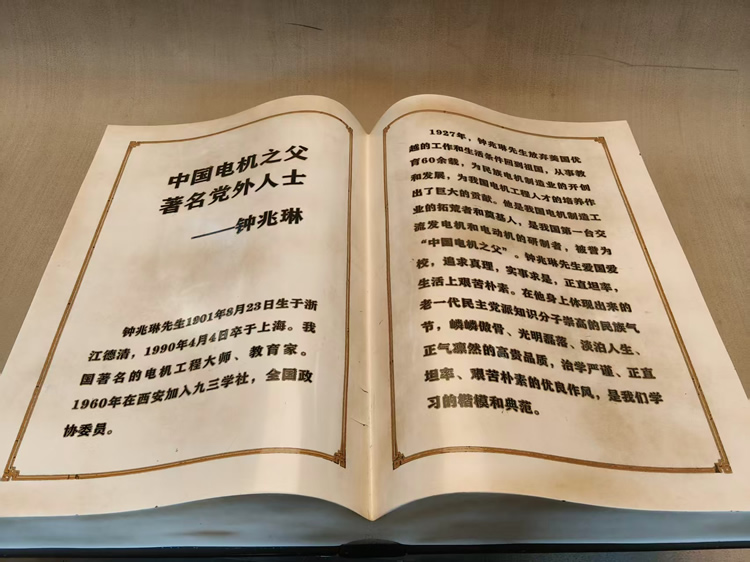 中国电机之父
著名党外人士
——钟兆琳
钟兆琳先生1901年8月23日生于浙
江德清，1990年4月4日卒于上海。我
国著名的电机工程大师、教育家。
1960年在西安加入九三学社，全国政
协委员。
1927年，钟兆琳先生放弃美国优
越的工作和生活条件回到祖国，从事教
育60余载，为民族电机制造业的开创
和发展，为我国电机工程人才的培养作
出了巨大的贡献。他是我国电机制造工
业的拓荒者和奠基人，是我国第一台交
流发电机和电动机的研制者，被誉为
“中国电机之父”。钟兆琳先生爱国爱
校，追求真理，实事求是，正直坦率，
生活上艰苦朴素。在他身上体现出来的
老一代民主党派知识分子崇高的民族气
节，嶙嶙傲骨、光明磊落、淡泊人生、
正气凛然的高贵品质，治学严谨、正直
坦率、艰苦朴素的优良作风，是我们学
习的楷模和典范。